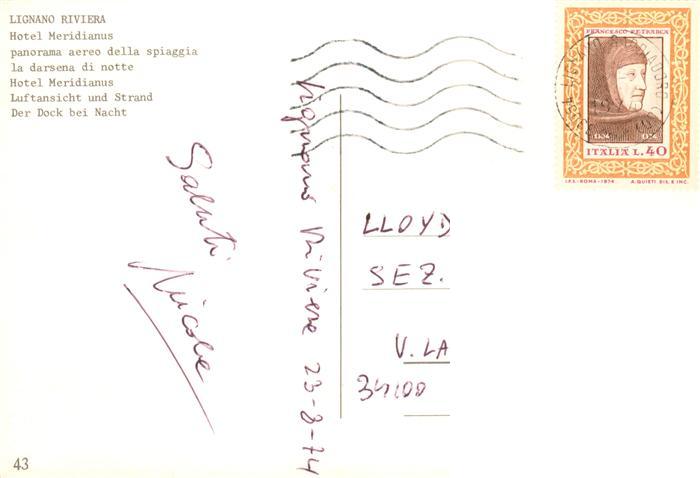 LIGNANO RIVIERA
Hotel Meridianus
panorama aereo della spiaggia
la darsena di notte
Hotel Meridianus
Luftansicht und Strand
Der Dock bei Nacht
Saluti
Nicole
Lignano Riviera 23-8-74
FRANCESCO PETRARCA
ITALIA L.40
I.P.S.-ROMA-1974 A. QUIETI DIS. E INC.
LLOYD
SEZ.
V. LA
34100
43